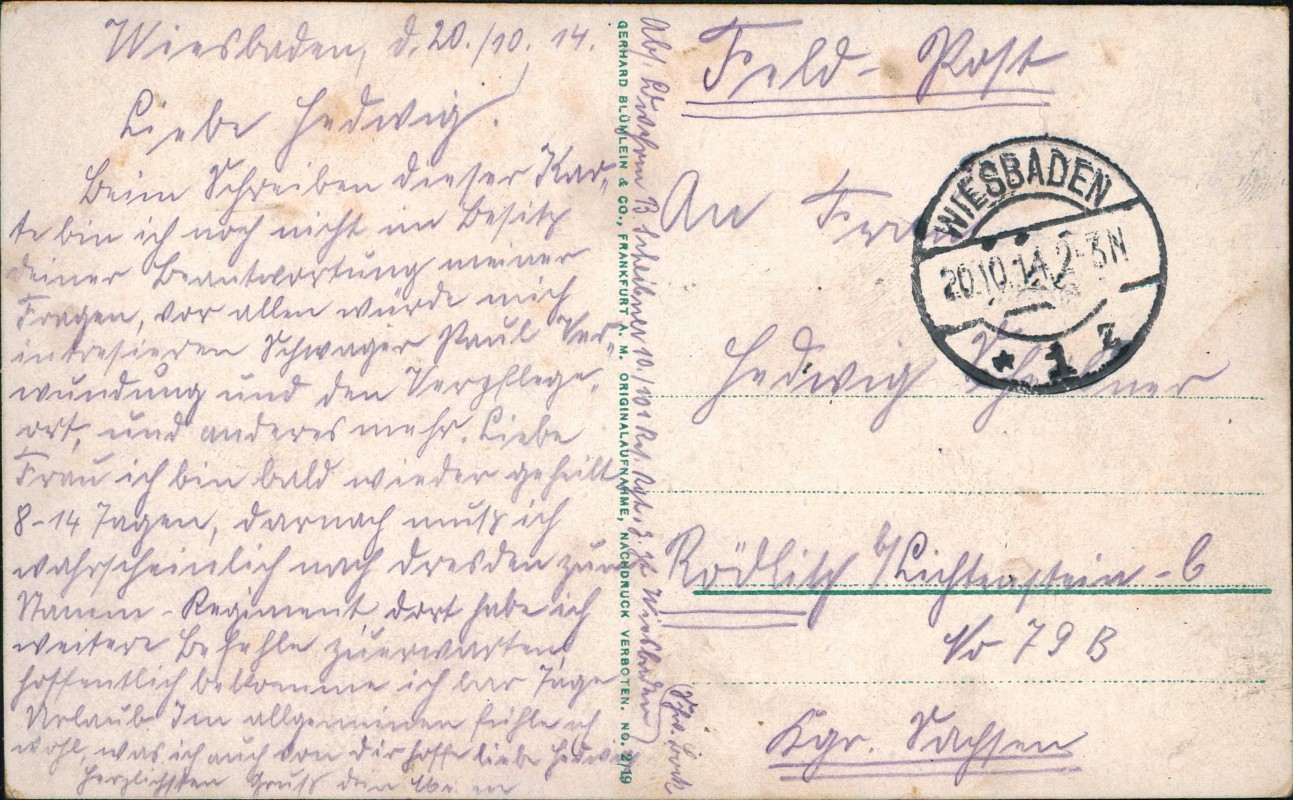 Wiesbaden, d. 20./10. 14.
Liebe Hedwig!
Beim Schreiben dieser Kar-
te bin ich noch nicht im Besitz
deiner Beantwortung meiner
Fragen, vor allen würde mich
intresieren Schwager Paul Ver-
wundung und den Verpflege-
ort, und anderes mehr. Liebe
Frau ich bin bald wieder geheilt,
8-14 Tagen, darnach muß ich
wahrscheinlich nach Dresden zum
Stamm-Regiment, dort habe ich
weitere Befehle zuerwarten,
hoffentlich bekomme ich
Tage
Urlaub. Im allgemeinen fühle ich
wohl, was ich auch von dir hoffe liebe Hedwig
Herzlichsten Gruß
GERHARD BLÜMLEIN & CO., FRANKFURT A. M. ORIGINALAUFNAHME, NACHDRUCK VERBOTEN. NO. 2/19
Abs. B Scheibner 10./101 Res. Rgt. z. Zt Wiesbaden
Feld-Post
An Frau
Hedwig Scheibner
Rödlitz b/Lichtenstein-C
No 79 B
Kgr. Sachsen
WIESBADEN
20.10.14.2-3N
* 1 z